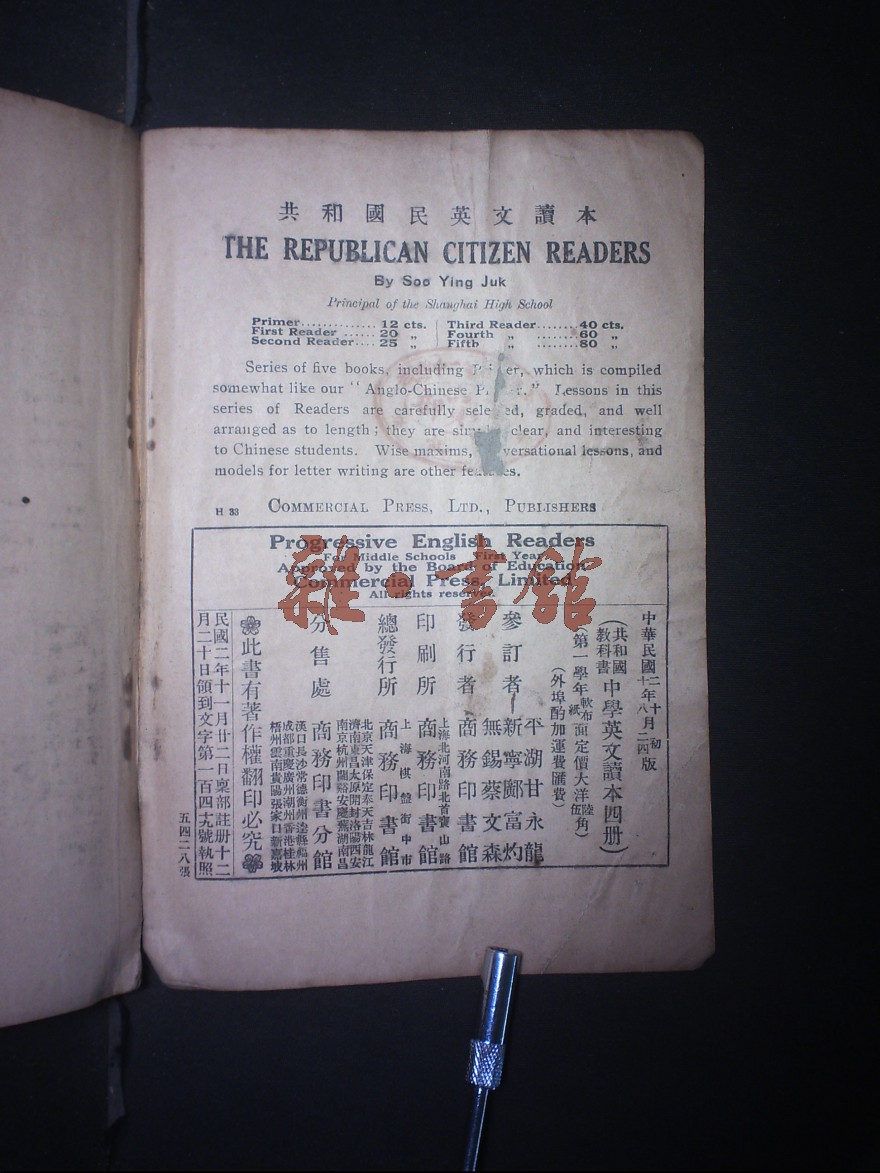 共和國民英文讀本
THE REPUBLICAN CITIZEN READERS
By Soo Ying Juk
Principal of the Shanghai High School
Primer.............. 12 cts.
First Reader ...... 20 „
Second Reader.... 25 „
Third Reader........40 cts.
Fourth „ ........60 „
Fifth „ ........80 „
Series of five books, including which is compiled
somewhat like our "Anglo-Chinese Lessons in this
series of Readers are carefully graded, and well
arranged as to length; they are clear, and interesting
to Chinese students. Wise maxims, lessons, and
models for letter writing are other
H 33 COMMERCIAL PRESS, LTD., PUBLISHERS
Progressive English Readers
For Middle Schools First Year
Approved by the Board of Education
Commercial Press, Limited
All rights reserved
雜·書館
中華民國二年十月初版
十年八月二四版
(共和國教科書 中學英文讀本四册)
(第一學年 紙面 軟布面 定價大洋 伍角 陸角)
(外埠酌加運費匯費)
參訂者 平湖甘永龍
新寧鄺富灼
無錫蔡文森
發行者 商務印書館
印刷所 上海北河南路北首寶山路
商務印書館
總發行所 上海棋盤街中市
商務印書館
分售處 商務印書分館
北京天津保定奉天吉林龍江
濟南東昌太原開封洛陽西安
南京杭州蘭谿安慶蕪湖南昌
漢口長沙常德衡州
成都重慶廣州潮州香港桂林
梧州雲南貴陽張家口新嘉坡
此書有著作權翻印必究
民國二年十一月廿二日稟部註册十二
月二十日領到文字第一百四十號執照
五四二八張